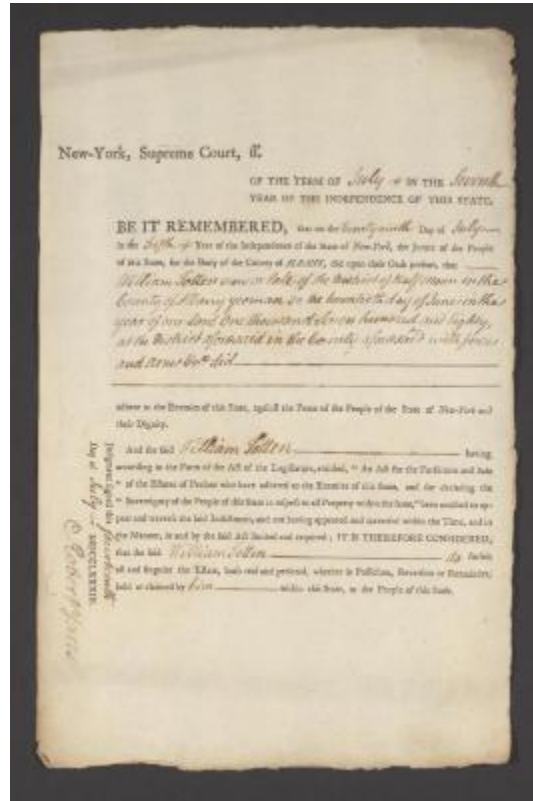 New-York, Supreme Court, ss.
OF THE TERM OF July IN THE Seventh
YEAR OF THE INDEPENDENCE OF THIS STATE.
BE IT REMEMBERED, that on the twenty ninth Day of July
in the fifth Year of the Independence of the State of New-York, the Jurors of the People
of this State, for the Body of the County of ALBANY, did upon their Oath present, that
William Totten now or late of the District of Half Moon in the
County of Albany yeoman on the twentieth day of June in the
year of our Lord One thousand Seven hundred and Eighty,
at the District aforesaid in the County aforesaid with force
and arms &c did
adhere to the Enemies of this State, against the Peace of the People of the State of New-York and
their Dignity.
And the said William Totten having
according to the Form of the Act of the Legislature, entitled, "An Act for the Forfeiture and Sale
" of the Estates of Persons who have adhered to the Enemies of this State, and for declaring the
" Sovereignty of the People of this State in respect to all Property within the same," been notified to ap-
pear and traverse the said Indictment, and not having appeared and traversed within the Time, and in
the Manner, in and by the said Act limited and required; IT IS THEREFORE CONSIDERED,
that the said William Totten do forfeit
all and singular the Estate, both real and personal, whether in Possession, Reversion or Remainder,
held or claimed by him within this State, to the People of this State.
Judgment signed this
Day of July MDCCLXXXIII.